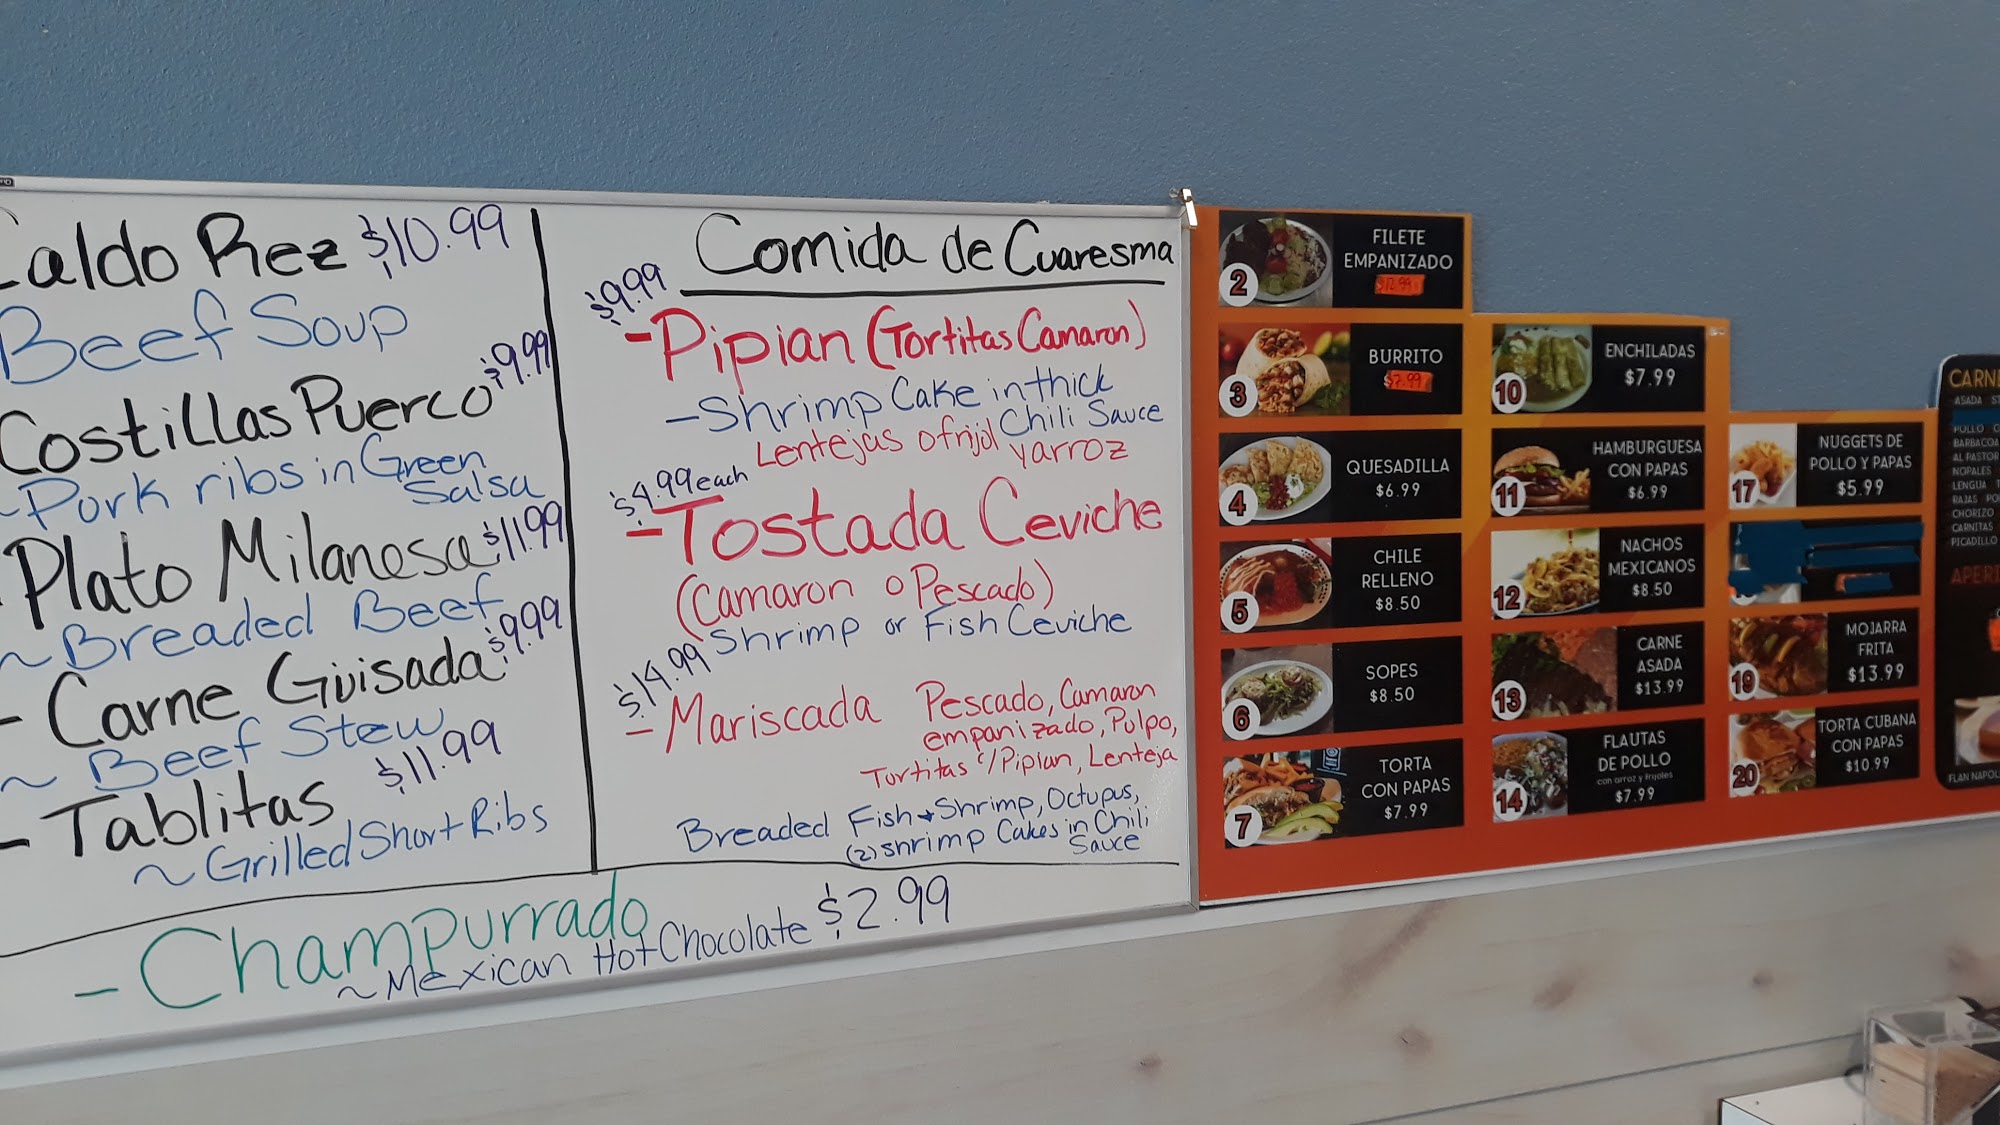 Caldo Rez $10.99
Beef Soup
Costillas Puerco $9.99
~Pork ribs in Green
Salsa
Plato Milanesa $11.99
~Breaded Beef
- Carne Guisada $9.99
~ Beef Stew
- Tablitas $11.99
~Grilled Short Ribs
Comida de Cuaresma
$9.99
-Pipian (Tortitas Camaron)
-Shrimp Cake in thick
Chili Sauce
Lentejas o frijol
y arroz
$4.99 each
-Tostada Ceviche
(Camaron o Pescado)
Shrimp or Fish Ceviche
$14.99
- Mariscada Pescado, Camaron
empanizado, Pulpo,
Tortitas c/Pipian, Lenteja
Breaded Fish + Shrimp, Octupus,
(2) shrimp Cakes in Chili
Sauce
- Champurrado
~Mexican Hot Chocolate $2.99
2
FILETE
EMPANIZADO
$12.99
3
BURRITO
$7.99
4
QUESADILLA
$6.99
5
CHILE
RELLENO
$8.50
6
SOPES
$8.50
7
TORTA
CON PAPAS
$7.99
10
ENCHILADAS
$7.99
11
HAMBURGUESA
CON PAPAS
$6.99
12
NACHOS
MEXICANOS
$8.50
13
CARNE
ASADA
$13.99
14
FLAUTAS
DE POLLO
con arroz y frijoles
$7.99
17
NUGGETS DE
POLLO Y PAPAS
$5.99
19
MOJARRA
FRITA
$13.99
20
TORTA CUBANA
CON PAPAS
$10.99
CARNE
ASADA
POLLO
BARBACOA
AL PASTOR
NOPALES
LENGUA
RAJAS
CHORIZO
CARNITAS
PICADILLO
FLAN